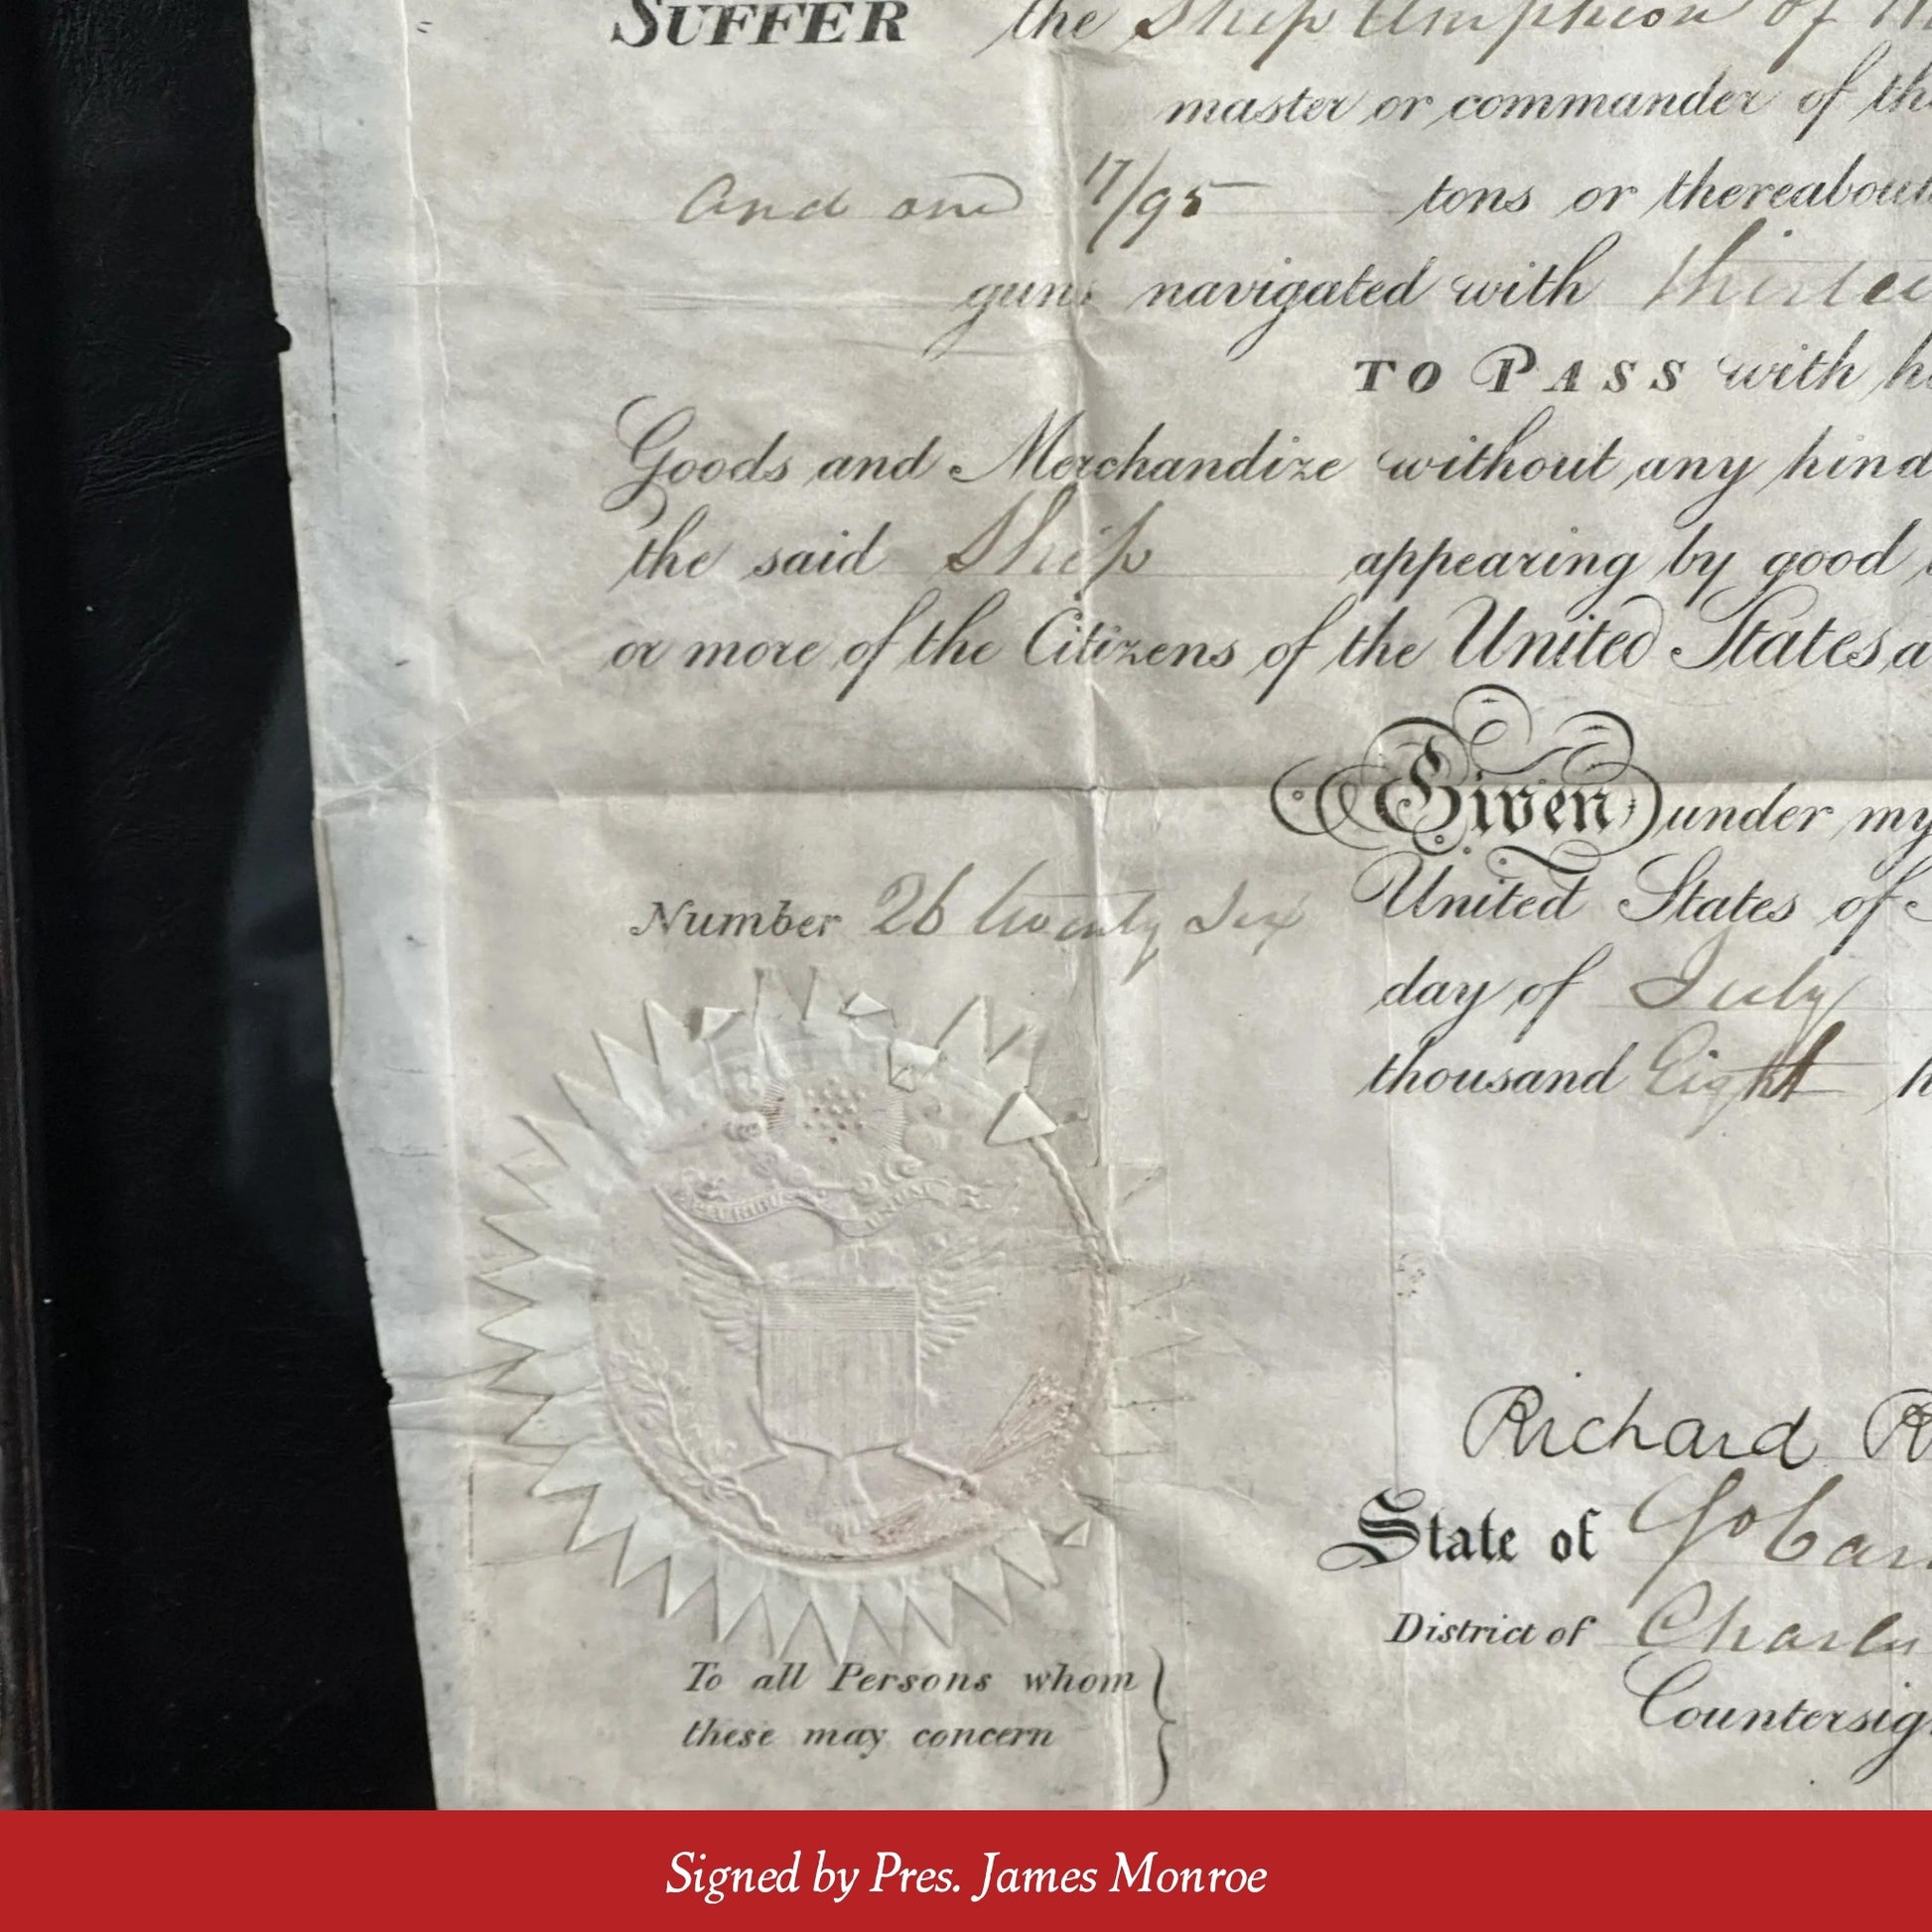 SUFFER the Ship Amphion of
master or commander of
and one 17/95 tons or thereabout
guns navigated with
TO PASS with
Goods and Merchandize without any hind
the said Ship appearing by good
or more of the Citizens of the United States, a
Given under my
Number 26 twenty Six United States of
day of July
thousand Eight
UNUM
Richard R
State of So Car
District of Charles
To all Persons whom
these may concern
Countersig
Signed by Pres. James Monroe